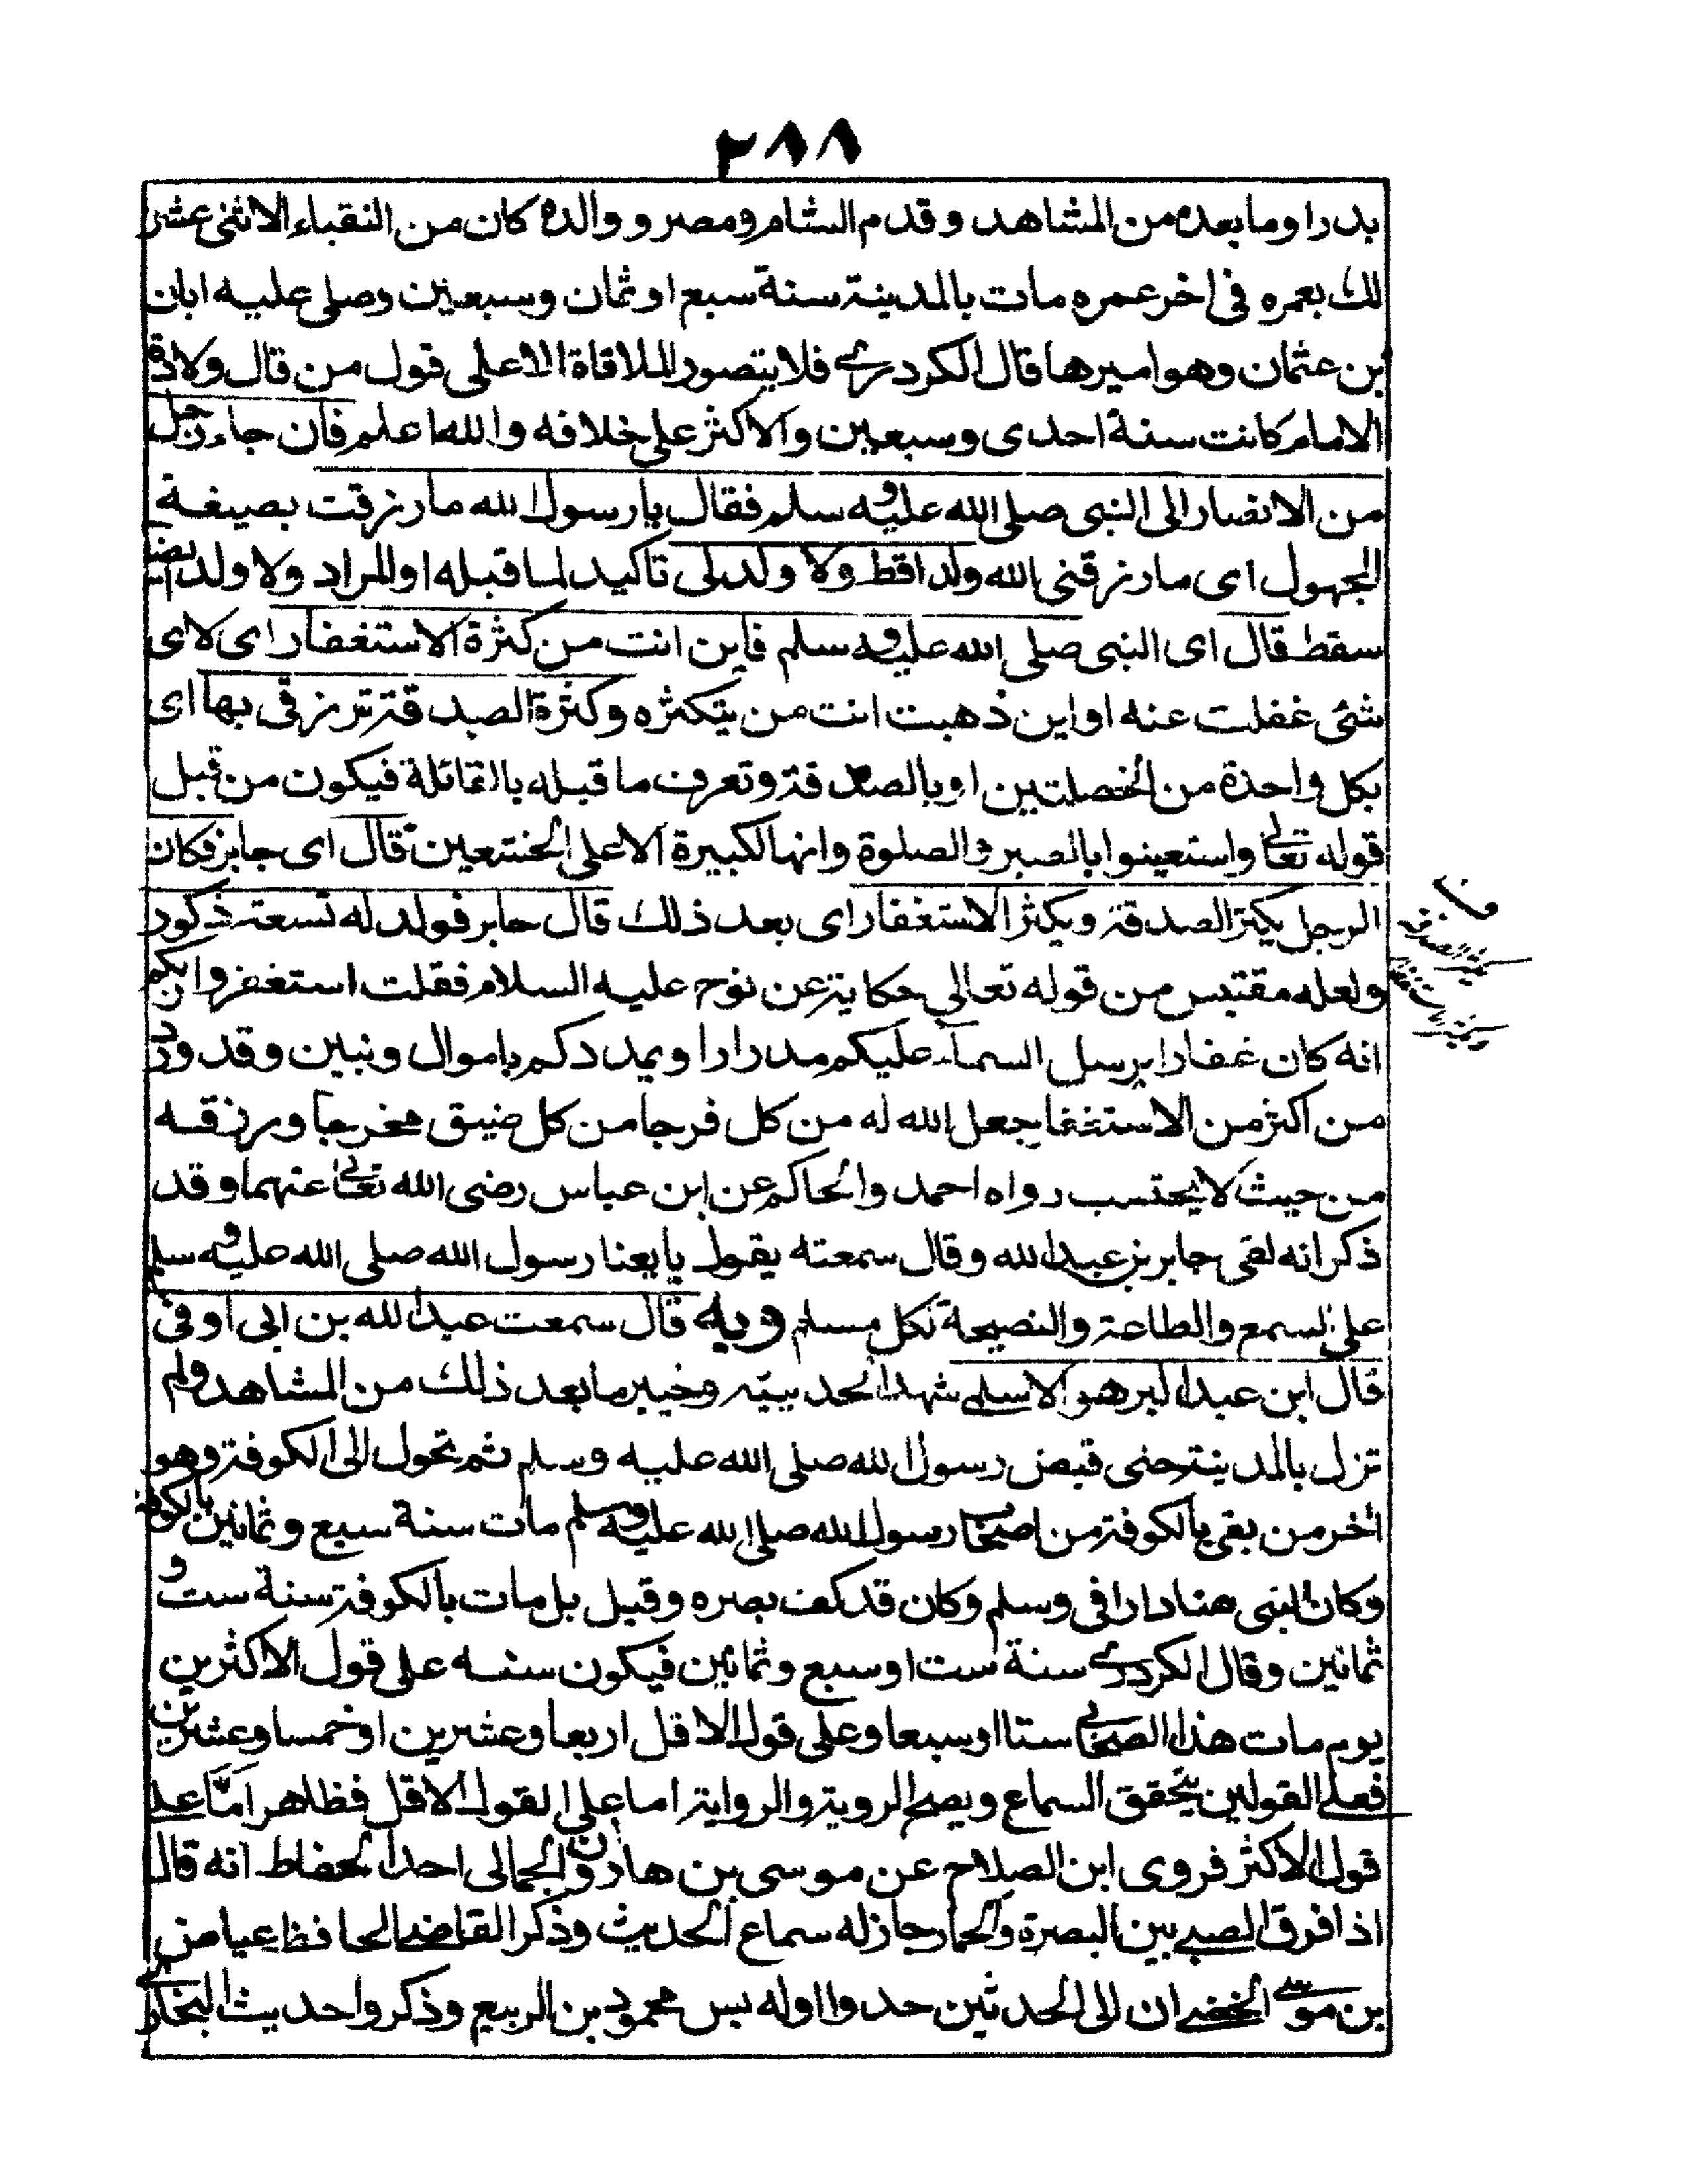 ٢٨٨
بدرا وما بعده من المشاهد وقدم الشام ومصر و والده كان من النقباء الاثنى عشر
بعمره فى اخر عمره مات بالمدينة سنة سبع او ثمان وسبعين وصلى عليه ابان
بن عثمان وهو اميرها قال الكردرى فلا يتصور الملاقاة الا على قول من قال ولادة
الامام كانت سنة احدى وسبعين والاكثر على خلافه والله اعلم فان جاء رجل
من الانصار الى النبى صلى الله عليه وسلم فقال يا رسول الله ما رزقت بصيغة
المجهول اى ما رزقنى الله ولدا قط ولا ولد لى تاكيد لما قبله او المراد ولا ولد
سقط قال اى النبى صلى الله عليه وسلم فاين انت من كثرة الاستغفار اى لاى
شئى غفلت عنه او اين ذهبت انت من يتكثره وكثرة الصدقة ترزق بها اى
بكل واحدة من الخصلتين او بالصدقة وتعرف ما قبله بالمقائلة فيكون من قبل
قوله تعالى واستعينوا بالصبر والصلوة وانها لكبيرة الا على الخشعين قال اى جابر فكان
الرجل يكثر الصدقة ويكثر الاستغفار اى بعد ذلك قال جابر فولد له تسعة ذكور
ولعله مقتبس من قوله تعالى حكاية عن نوح عليه السلام فقلت استغفروا ربكم
انه كان غفارا يرسل السماء عليكم مدرارا ويمددكم باموال وبنين وقد ورد
من اكثر من الاستغفا جعل الله له من كل فرجا من كل ضيق مخرجا ورزقه
من حيث لا يحتسب رواه احمد والحاكم عن ابن عباس رضى الله تعالى عنهما وقد
ذكر انه لقى جابر بن عبد الله وقال سمعته يقول بايعنا رسول الله صلى الله عليه وسلم
على السمع والطاعة والنصيحة لكل مسلم وبه قال سمعت عبد الله بن ابى اوفى
قال ابن عبد البر هو الاسلمى شهد الحديبية وخيبر ما بعد ذلك من المشاهد ولم
تزل بالمدينة حتى قبض رسول الله صلى الله عليه وسلم ثم تحول الى الكوفة وهو
اخر من بقى بالكوفة من اصحاب رسول الله صلى الله عليه وسلم مات سنة سبع وثمانين بالكوفة
وكان ابنى دارا فى وسلم وكان قد كف بصره وقيل بل مات بالكوفة سنة ست و
ثمانين وقال الكردرى سنة ست او سبع وثمانين فيكون سنه على قول الاكثرين
يوم مات هذا الصحابى ستا او سبعا وعلى قول الاقل اربعا وعشرين او خمسا وعشرين
فعلى القولين يتحقق السماع ويصح الروية والرواية اما على القول الاقل فظاهر اما على
قول الاكثر فروى ابن الصلاح عن موسى بن هارون الجمالى احد الحفاظ انه قال
اذا فرق الصبى بين البصرة والحمار جاز له سماع الحديث وذكر القاضى الحافظ عياض
بن موسى ان الى الحدثين حدوا اوله بس محمود بن الربيع وذكر واحديث البخارى